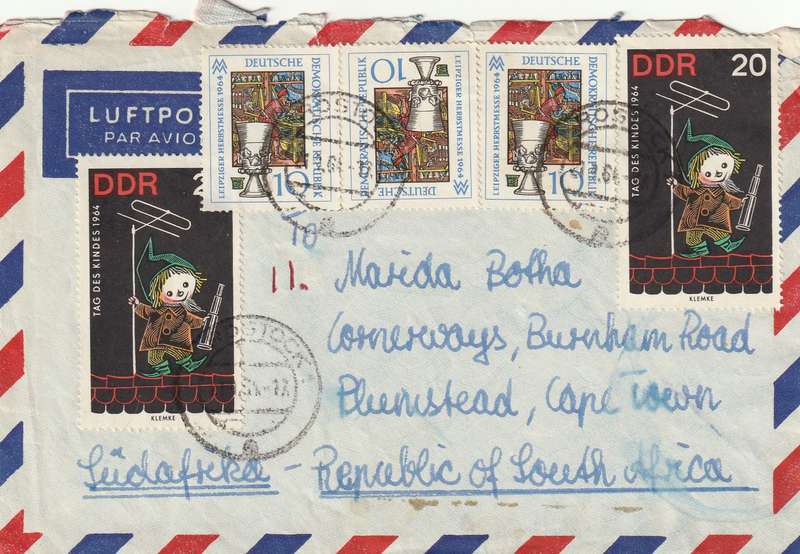 LUFTPO
PAR AVIO
DEUTSCHE
DEMOKRATISCHE REPUBLIK
LEIPZIGER HERBSTMESSE 1964
10
DEUTSCHE
DEMOKRATISCHE REPUBLIK
LEIPZIGER HERBSTMESSE 1964
10
DEUTSCHE
DEMOKRATISCHE REPUBLIK
LEIPZIGER HERBSTMESSE 1964
10
DDR 20
TAG DES KINDES 1964
KLEMKE
DDR 2
TAG DES KINDES 1964
KLEMKE
ROSTOCK
ROSTOCK
ROSTOCK
11. Marida Botha
Cornerways, Burnham Road
Plumstead, Cape Town
Südafrika - Republic of South Africa